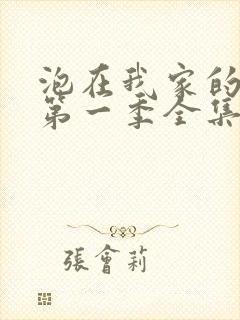 泡在我家的
第一季全集
張會莉